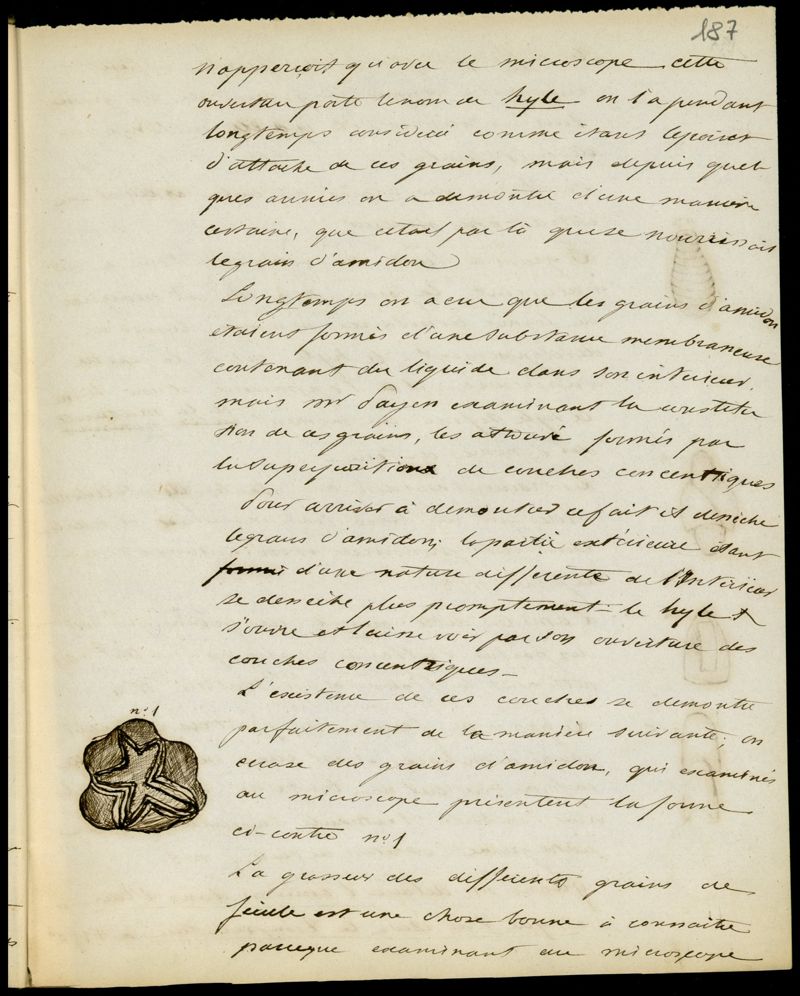 187
n'apperçoit qu'avec le microscope cette
ouverture porte le nom de hyle on l'a pendant
longtemps considéré comme étant le point
d'attache de ces grains, mais depuis quel-
ques années on a démontré d'une manière
certaine, que c'était par là que se nourrissait
le grain d'amidon
Longtemps on a cru que les grains d'amidon
étaient formés d'une substance membraneuse
contenant du liquide dans son intérieur.
mais mr Payen examinant la constitu
tion de ces grains, les a trouvé formés par
la superposition de couches concentriques
Pour arriver à démontrer ce fait il dessèche
le grain d'amidon; la partie extérieure étant
formé d'une nature différente de l'Intérieur
se dessèche plus promptement - le hyle
s'ouvre et laisse voir par son ouverture des
couches concentriques -
L'existence de ces couches se démontre
n° 1
parfaitement de la manière suivante; on
écrase des grains d'amidon, qui examinés
au microscope présentent la forme
ci-contre n° 1
La grosseur des différents grains de
fécule est une chose bonne à connaître
parceque examinant au microscope